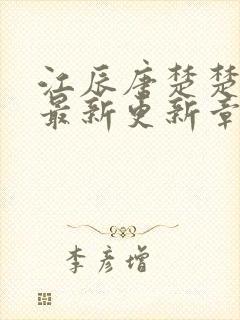 江辰唐楚楚
最新更新章
李彦增